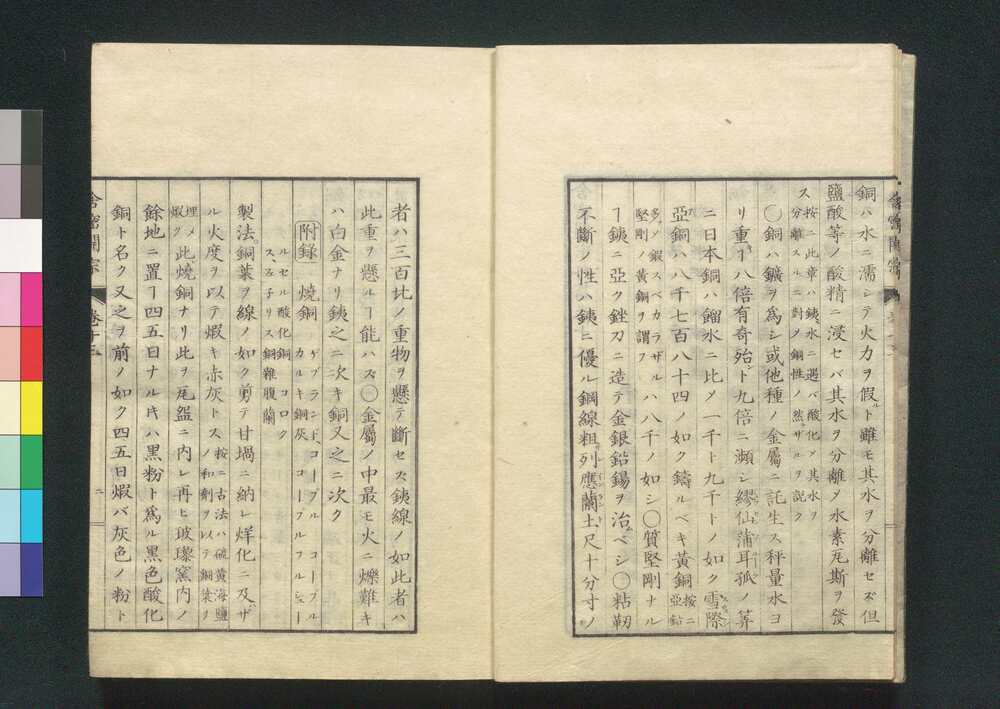 銅ハ水ニ濡シテ火力ヲ假ルト雖モ其水ヲ分離セズ但
鹽酸等ノ酸精ニ浸セバ其水ヲ分離メ水素瓦斯ヲ發
ス按ニ此章ハ銕水ニ遇バ酸化メ其水ヲ
分離スルニ對メ銅性ノ然ザルヲ説ク
〇銅ハ鑛ヲ爲シ或他種ノ金屬ニ託生ス秤量水ヨ
リ重ヿ八倍有奇殆ド九倍ニ瀕シ繆仙蒲耳孤ノ筭
ニ日本銅ハ餾水ニ比メ一千ト九千トノ如ク雪際
亞銅ハ八千七百八十四ノ如ク鑄ルベキ黄銅按ニ
亞鉛
多ク鍜スベカラザル
堅剛ノ黄銅ヲ謂フハ八千ノ如シ〇質堅剛ナル
ヿ銕ニ亞ク銼刀ニ造テ金銀鉛錫ヲ治ベシ〇粘靭
不斷ノ性ハ銕ニ優ル鋼線粗列應蘭土尺十分寸ノ
者ハ三百比ノ重物ヲ懸テ斷セス銕線ノ如此者ハ
此重ヲ懸ルヿ能ハズ〇金屬ノ中最モ火ニ爍難キ
ハ白金ナリ銕之ニ次キ銅又之ニ次ク
附録 燒銅 ゲブランド、コープル コープル
カルキ銅灰 コープルフルシュー
ルセル酸化銅 コロク
ス、子リス 銅雜腹蘭
製法。銅葉ヲ線ノ如ク剪テ甘堝ニ納レ烊化ニ及ザ
ル火度ヲ以テ煆キ赤灰トス按ニ古法ハ硫黄海鹽
ノ和劑ヲ以テ銅葉ヲ
埋メ
煆ク此燒銅ナリ此ヲ瓦盌ニ内レ再ヒ玻瓈窯内ノ
餘地ニ置ヿ四五日ナル𪜈ハ黒粉ト爲ル黒色酸化
銅ト名ク又之ヲ前ノ如ク四五日煆バ灰色ノ粉ト